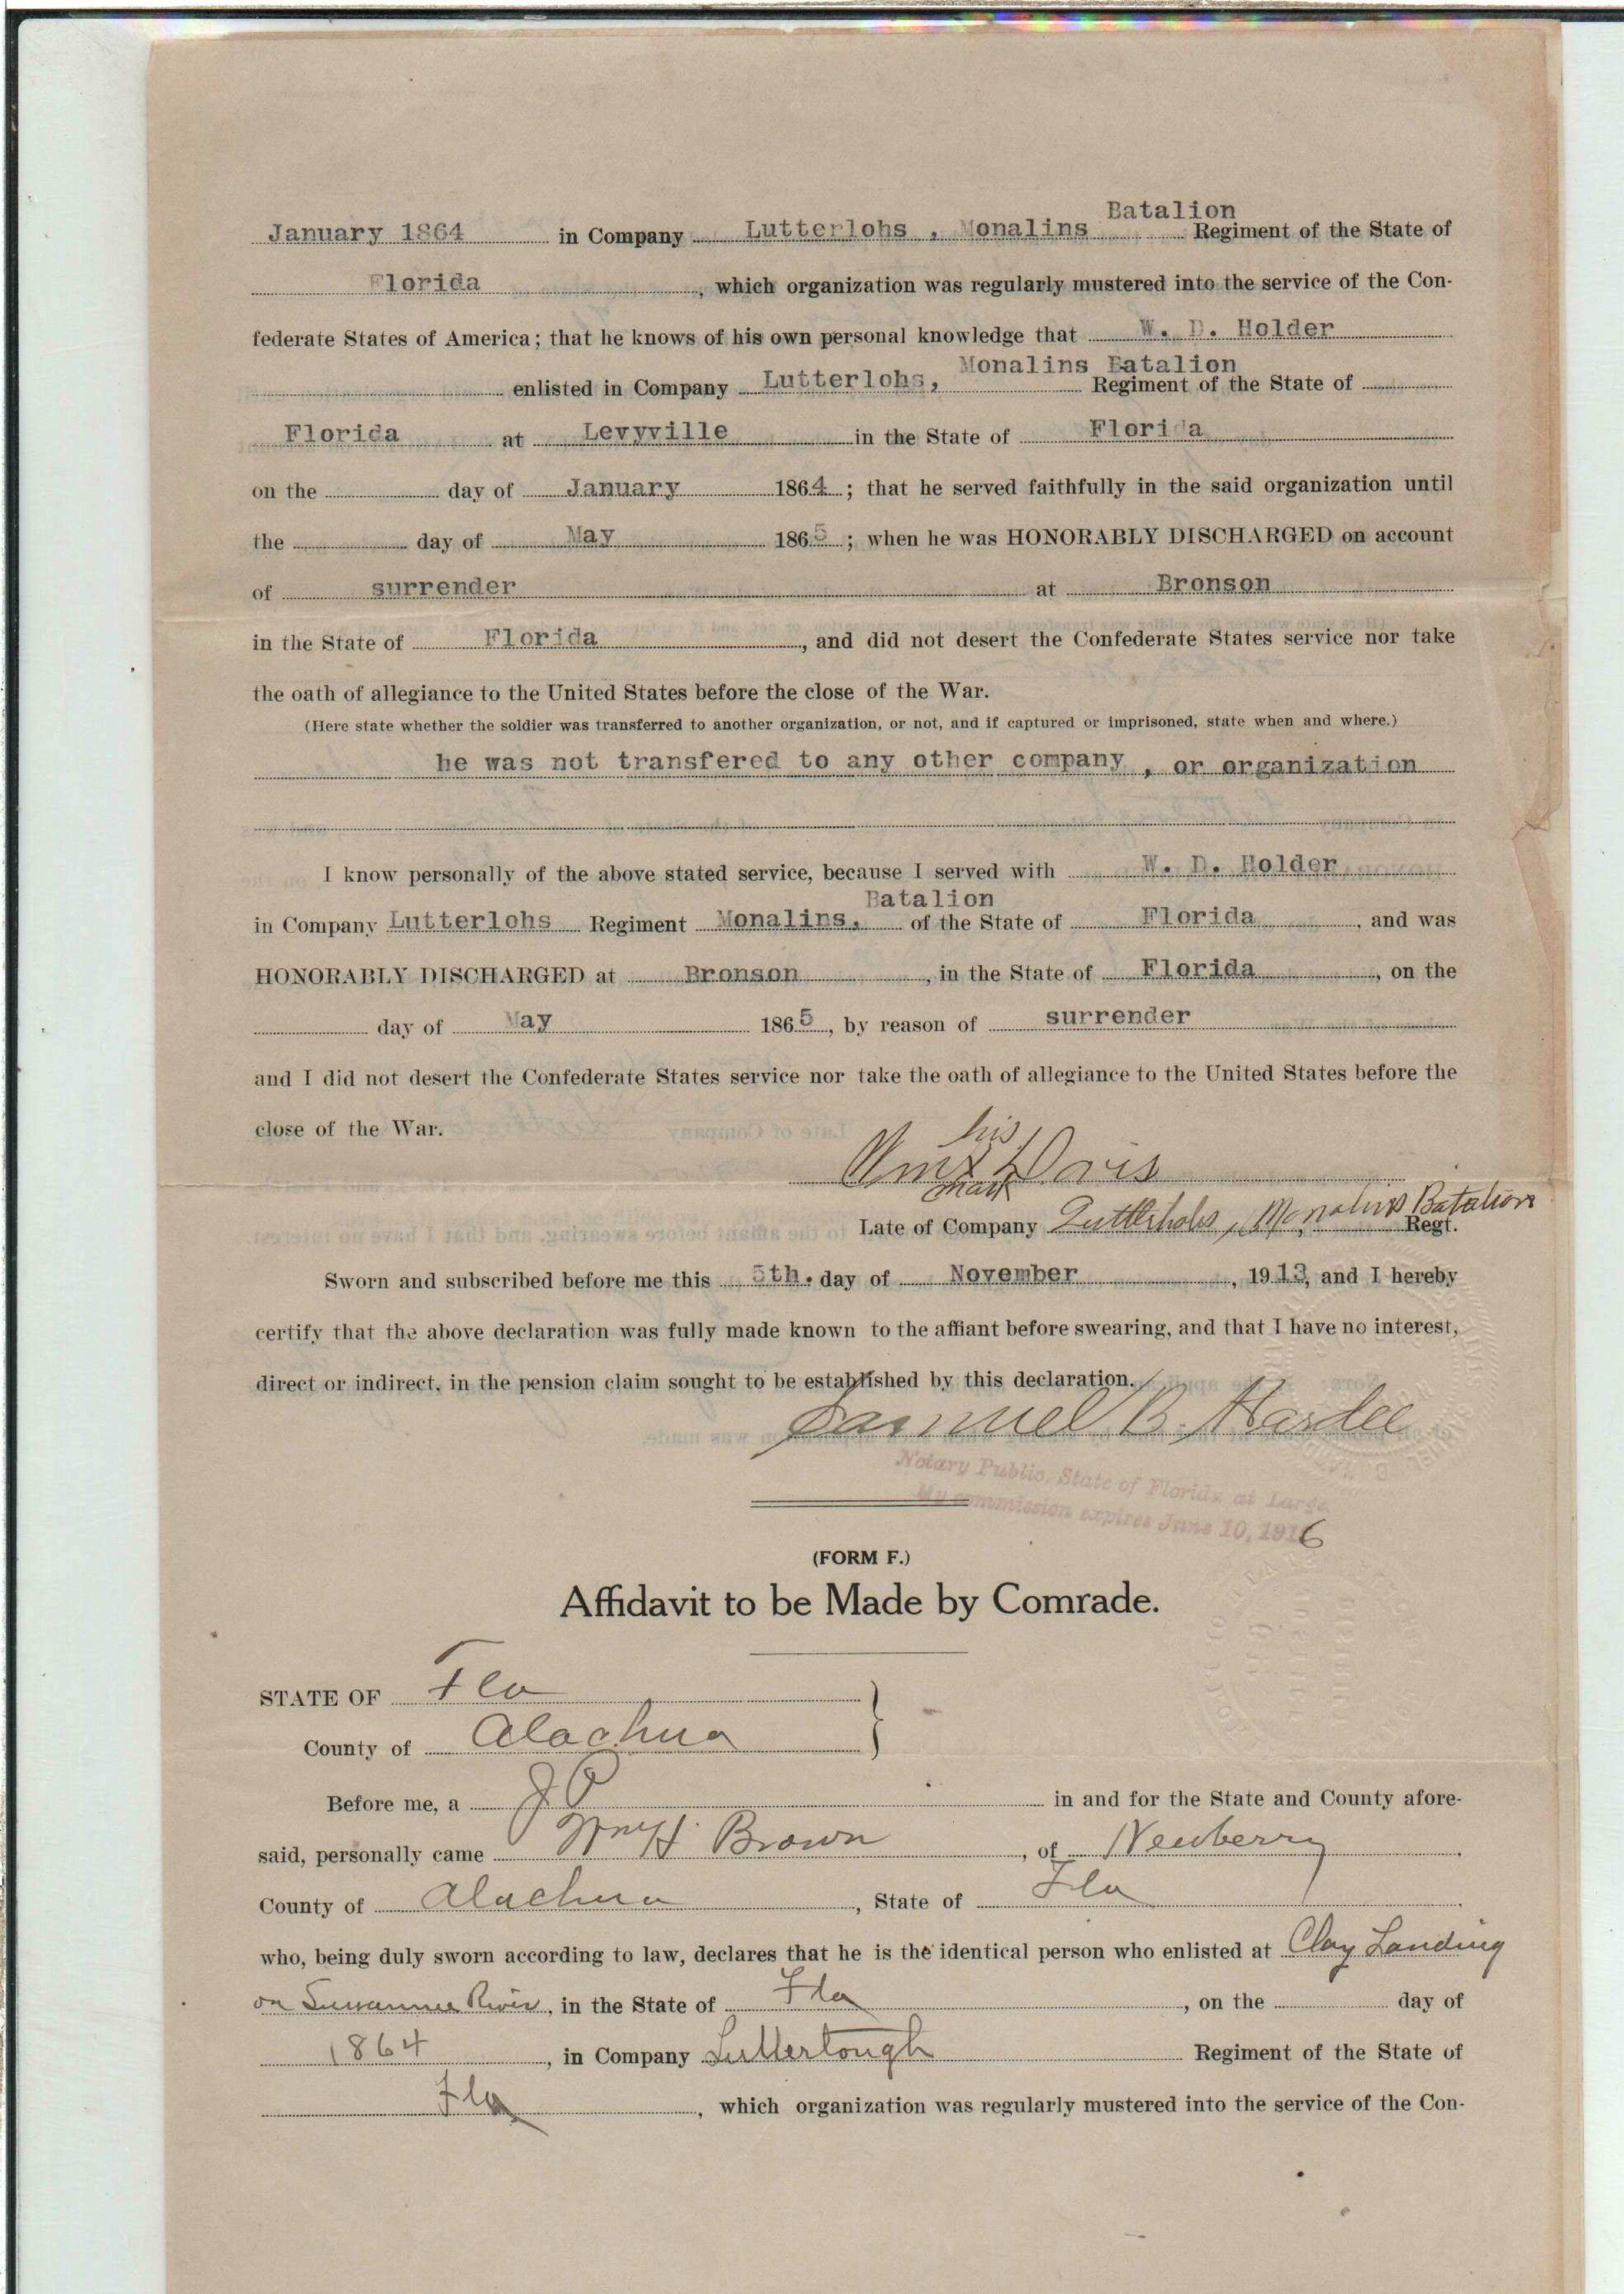 Batalion
January 1864 in Company Lutterlohs , Monalins Regiment of the State of
Florida , which organization was regularly mustered into the service of the Con-
federate States of America; that he knows of his own personal knowledge that W. D. Holder
Monalins Batalion
enlisted in Company Lutterlohs, Regiment of the State of
Florida at Levyville in the State of Florida
on the day of January 1864 ; that he served faithfully in the said organization until
the day of May 1865 ; when he was HONORABLY DISCHARGED on account
of surrender at Bronson
in the State of Florida , and did not desert the Confederate States service nor take
the oath of allegiance to the United States before the close of the War.
(Here state whether the soldier was transferred to another organization, or not, and if captured or imprisoned, state when and where.)
he was not transfered to any other company , or organization
I know personally of the above stated service, because I served with W. D. Holder
Batalion
in Company Lutterlohs Regiment Monalins, of the State of Florida , and was
HONORABLY DISCHARGED at Bronson , in the State of Florida , on the
day of May 1865 , by reason of surrender
and I did not desert the Confederate States service nor take the oath of allegiance to the United States before the
close of the War.
his
Wm X Davis
mark
Late of Company Lutterlohs, Monalins Batalion Regt.
Sworn and subscribed before me this 5th. day of November , 1913, and I hereby
certify that the above declaration was fully made known to the affiant before swearing, and that I have no interest,
direct or indirect, in the pension claim sought to be established by this declaration.
Samuel B. Hardee
Notary Public, State of Florida at Large.
My commission expires June 10, 1916
(FORM F.)
Affidavit to be Made by Comrade.
STATE OF Fla
County of Alachua
Before me, a J P in and for the State and County afore-
said, personally came Wm H Brown , of Newberry
County of Alachua , State of Fla
who, being duly sworn according to law, declares that he is the identical person who enlisted at Clay Landing
on Suwannee River , in the State of Fla , on the day of
1864 , in Company Luttertough Regiment of the State of
Fla , which organization was regularly mustered into the service of the Con-